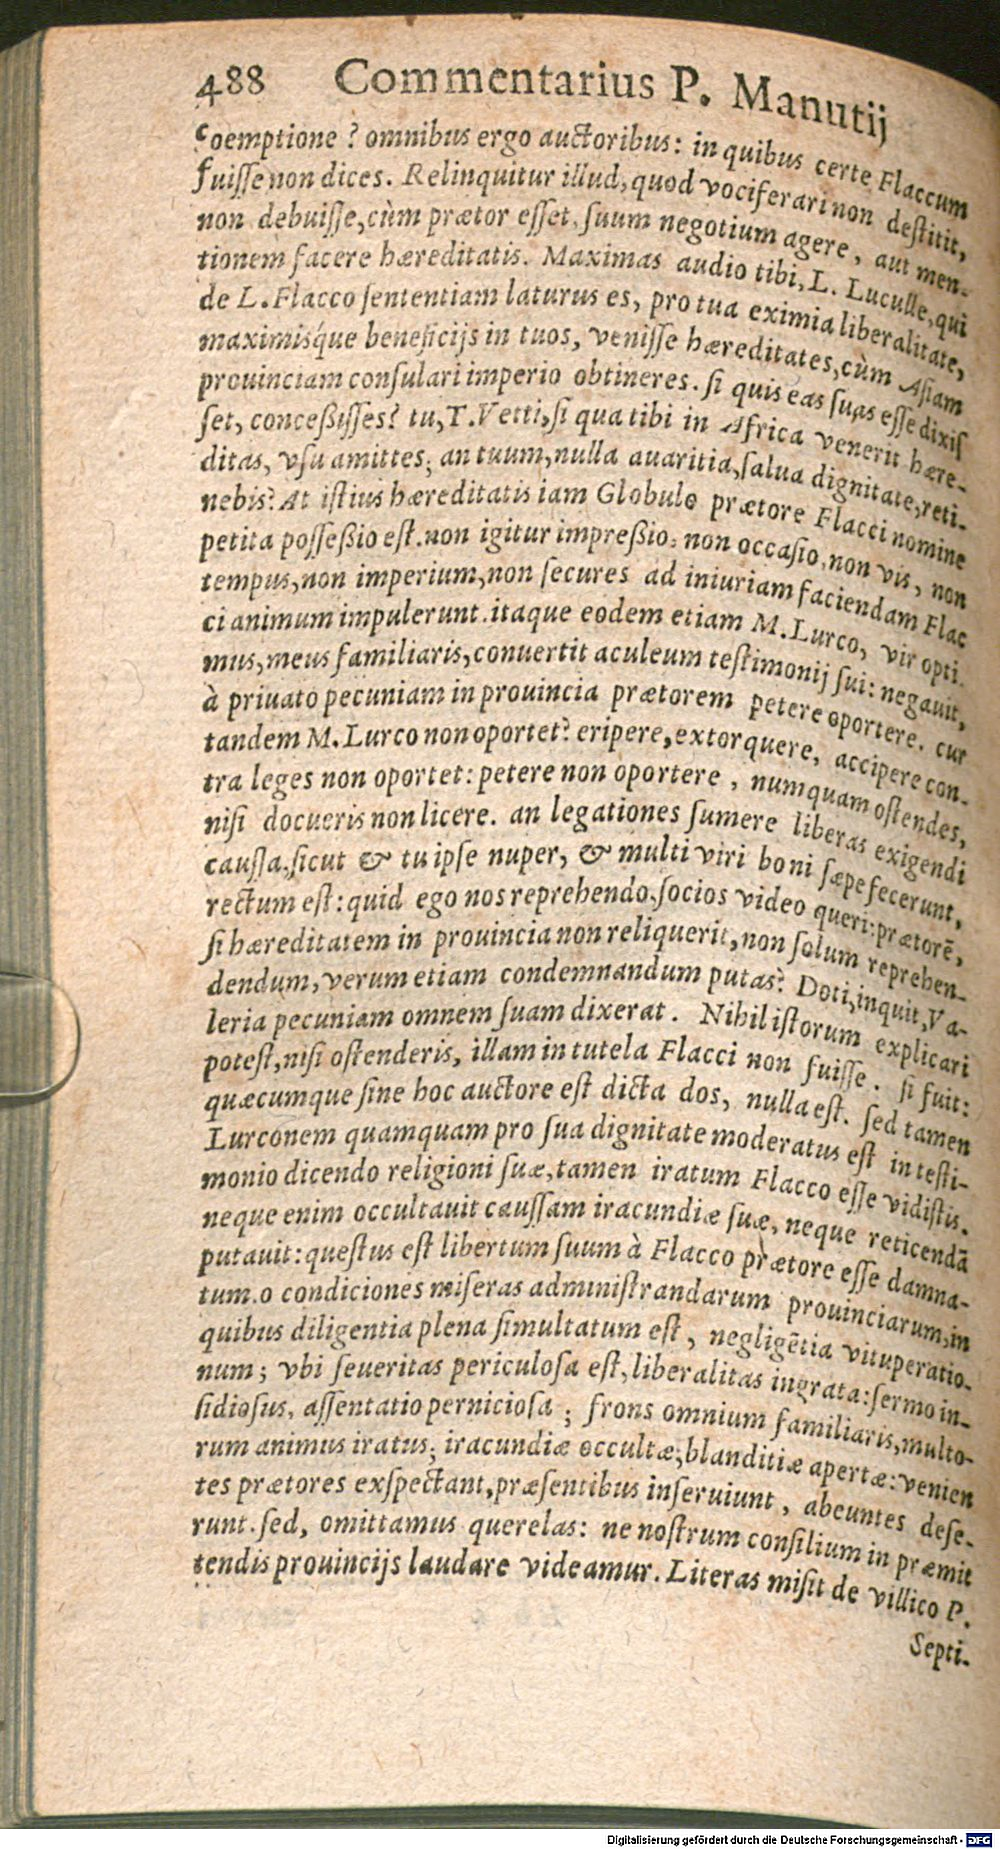 488 Commentarius P. Manutij
coemptione ? omnibus ergo auctoribus: in quibus certe Flaccum
fuiſſe non dices. Relinquitur illud, quod vociferari non deſtitit,
non debuiſſe, cùm prætor eſſet, ſuum negotium agere, aut men-
tionem facere hæreditatis. Maximas audio tibi, L. Luculle, qui
de L. Flacco ſententiam laturus es, pro tua eximia liberalitate,
maximisque beneficijs in tuos, veniſſe hæreditates, cùm Aſiam
prouinciam conſulari imperio obtineres. ſi quis eas ſuas eſſe dixiſ
ſet, conceßiſſes? tu, T. Vetti, ſi qua tibi in Africa venerit hære-
ditas, vſu amittes; an tuum, nulla auaritia, ſalua dignitate, reti-
nebis? At iſtius hæreditatis iam Globulo prætore Flacci nomine
petita poſſeßio eſt. non igitur impreßio, non occaſio, non vis, non
tempus, non imperium, non ſecures ad iniuriam faciendam Flac
ci animum impulerunt. itaque eodem etiam M. Lurco, vir opti-
mus, meus familiaris, conuertit aculeum teſtimonij ſui: negauit,
à priuato pecuniam in prouincia prætorem petere oportere. cur
tandem M. Lurco non oportet? eripere, extorquere, accipere con-
tra leges non oportet: petere non oportere, numquam oſtendes,
niſi docueris non licere. an legationes ſumere liberas exigendi
cauſſa, ſicut & tu ipſe nuper, & multi viri boni ſæpe fecerunt,
rectum eſt: quid ego nos reprehendo, ſocios video queri: prætorẽ,
ſi hæreditatem in prouincia non reliquerit, non ſolum reprehen-
dendum, verum etiam condemnandum putas? Doti, inquit, Va-
leria pecuniam omnem ſuam dixerat. Nihil iſtorum explicari
poteſt, niſi oſtenderis, illam in tutela Flacci non fuiſſe. ſi fuit:
quæcumque ſine hoc auctore eſt dicta dos, nulla eſt. ſed tamen
Lurconem quamquam pro ſua dignitate moderatus eſt in teſti-
monio dicendo religioni ſuæ, tamen iratum Flacco eſſe vidiſtis.
neque enim occultauit cauſſam iracundiæ ſuæ, neque reticendã
putauit: queſtus eſt libertum ſuum à Flacco prætore eſſe damna-
tum. o condiciones miſeras adminiſtrandarum prouinciarum, in
quibus diligentia plena ſimultatum eſt, negligẽtia vituperatio-
num; vbi ſeueritas periculoſa eſt, liberalitas ingrata: ſermo in-
ſidioſus, aſſentatio pernicioſa; frons omnium familiaris, multo-
rum animus iratus; iracundiæ occultæ; blanditiæ apertæ: venien
tes prætores exſpectant, præſentibus inſeruiunt, abeuntes deſe-
runt. ſed, omittamus querelas: ne noſtrum conſilium in præmit
tendis prouincijs laudare videamur. Literas miſit de villico P.
Septi-
Digitalisierung gefördert durch die Deutsche Forschungsgemeinschaft - DFG